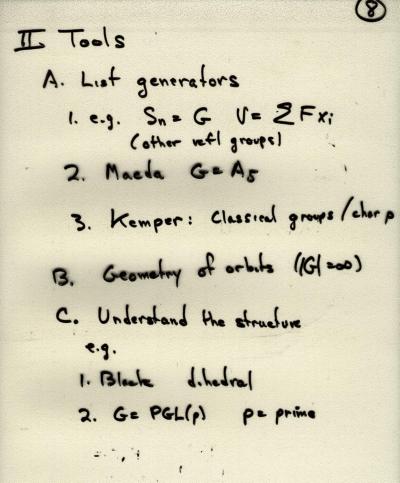 8
II Tools
A. List generators
1. e.g. Sn = G V = ΣFxi
(other refl groups)
2. Maeda G = A5
3. Kemper: Classical groups / char p
B. Geometry of orbits (|G| = ∞)
C. Understand the structure
e.g.
1. dihedral
2. G = PGL(p) p = prime